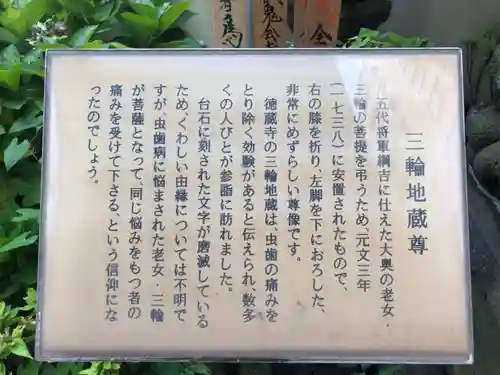 三輪地蔵尊
五代将軍綱吉に仕えた大奥の老女・
三輪の菩提を弔うため、元文三年
(一七三八)に安置されたもので、
右の膝を折り、左脚を下におろした、
非常にめずらしい尊像です。
徳蔵寺の三輪地蔵は、虫歯の痛みを
とり除く効験があると伝えられ、数多
くの人びとが参詣に訪れました。
台石に刻された文字が磨滅している
ため、くわしい由縁については不明で
すが、虫歯病に悩まされた老女・三輪
が菩薩となって、同じ悩みをもつ者の
痛みを受けて下さる、という信仰にな
ったのでしょう。